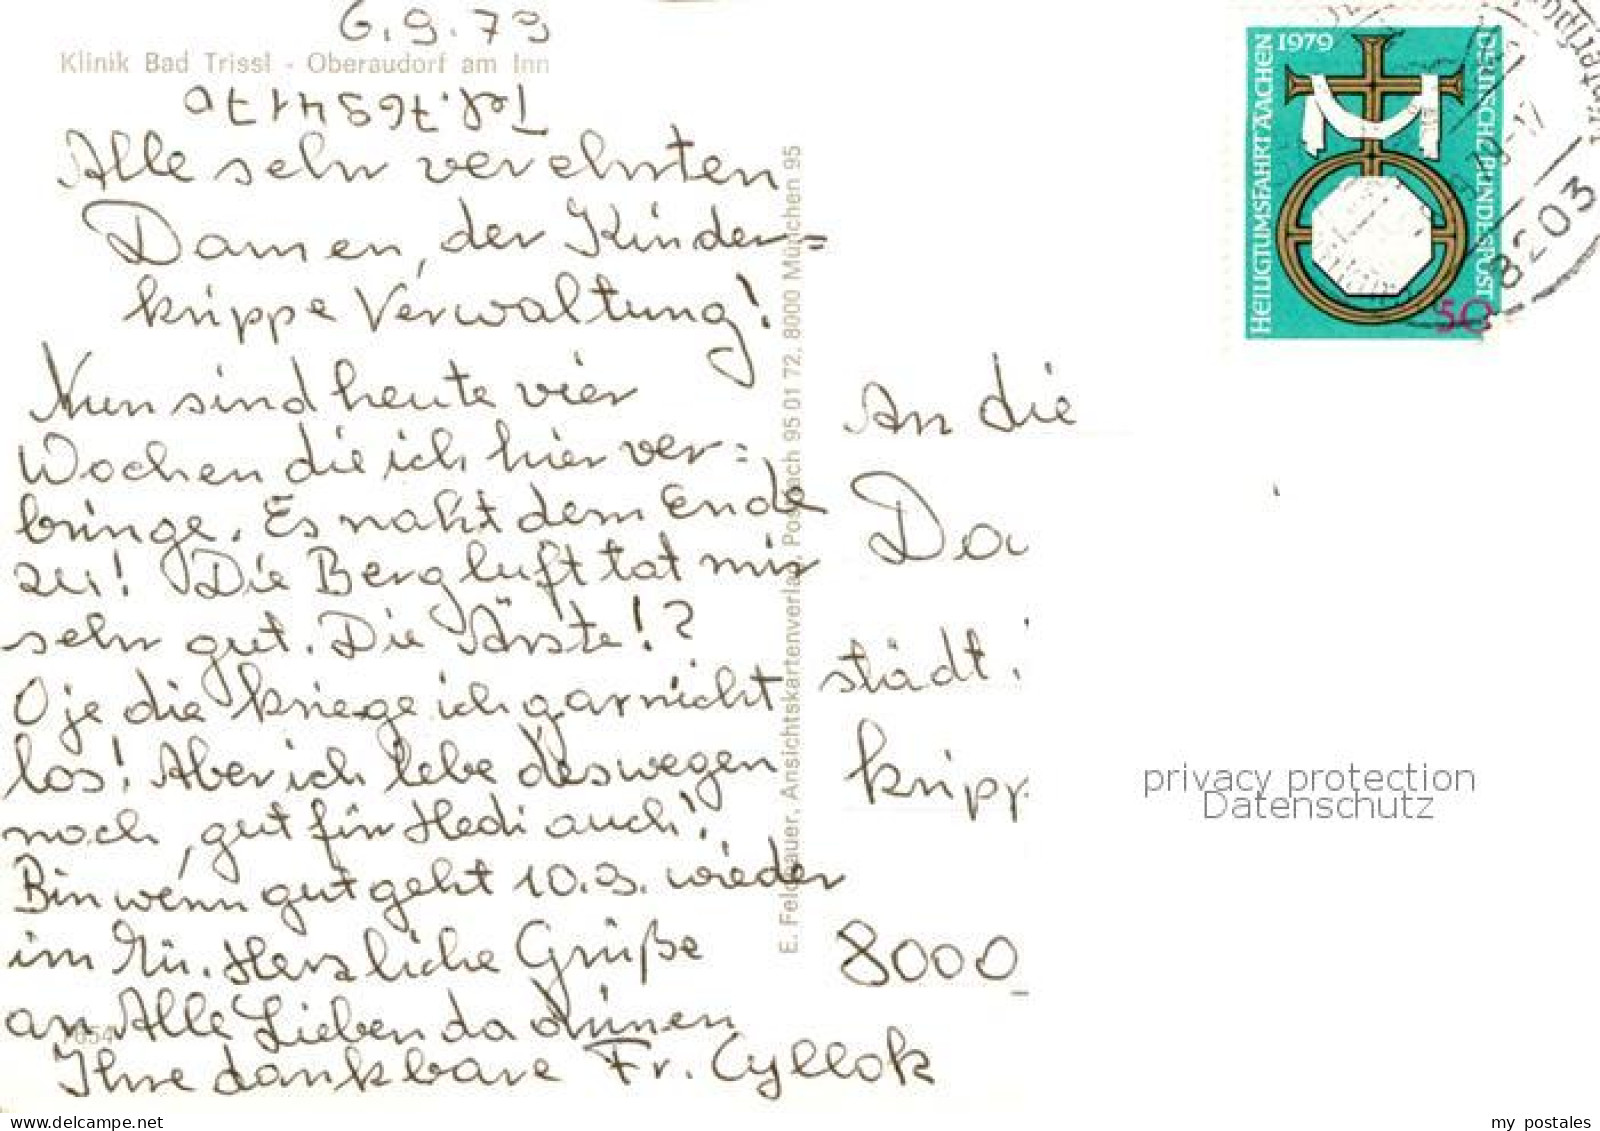 6.9.79
Klinik Bad Trissl - Oberaudorf am Inn
Tel. 7659417a
Alle sehr verehrten
Damen, der Kinder=
krippe Verwaltung!
Nun sind heute vier
Wochen die ich hier ver=
bringe. Es naht dem Ende
zu! Die Bergluft tat mir
sehr gut. Die Ärste!?
Oje die kriege ich garnicht
los! Aber ich lebe deswegen
noch, gut für Hedi auch!
Bin wenn gut geht 10.9. wieder
im Mü. Herzliche Grüße
an Alle Lieben da drinnen
Ihre dankbare Fr. Cyllok
654
E. Feldbauer, Ansichtskartenverlag, Postfach 95 01 72, 8000 München 95
HEILIGTUMSFAHRT AACHEN 1979
DEUTSCHE BUNDESPOST
50
8203
An die
Da
städt.
kripp
8000
privacy protection
Datenschutz
www.delcampe.net
my_postales